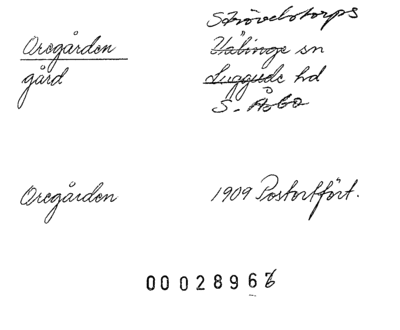 Oregården
gård
Strövelstorps
Välinge sn
Luggude hd
S. Åsbo
Oregården
1909 Postortfört.
00 028966